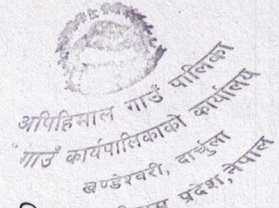 अपिहिमाल गाउँ पालिका
गाउँ कार्यपालिकाको कार्यालय
खण्डेश्वरी, दार्चुला
प्रदेश, नेपाल